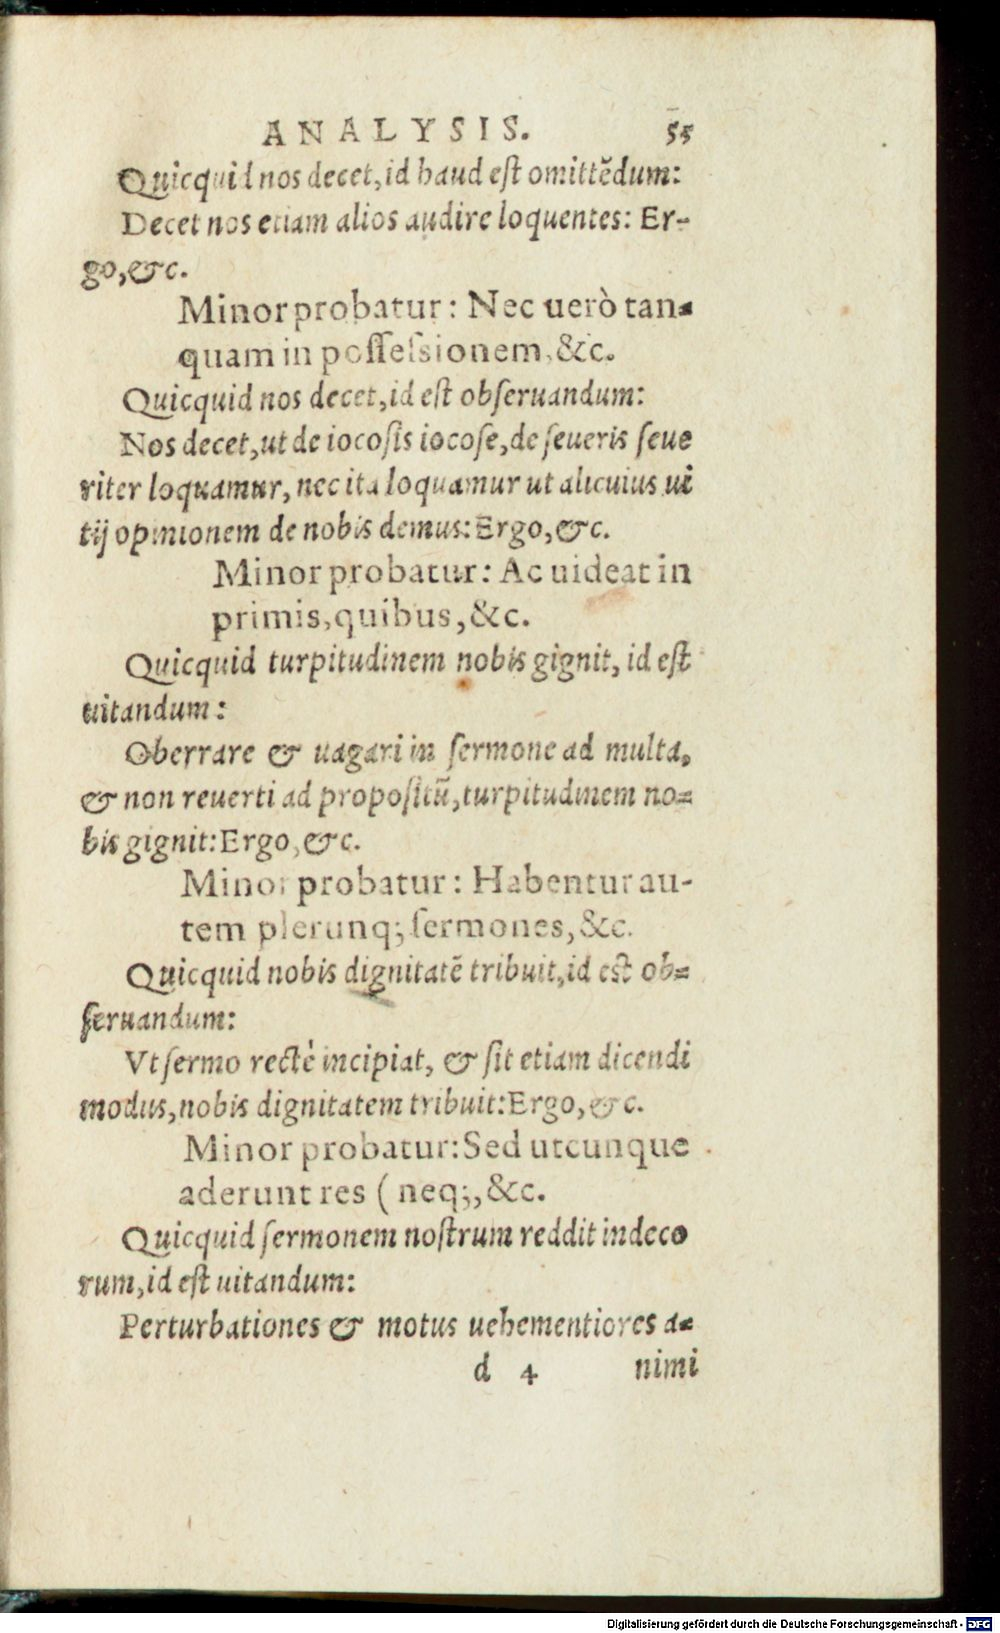 ANALYSIS. 55
Quicquid nos decet, id haud est omittēdum:
Decet nos etiam alios audire loquentes: Er-
go, &c.
Minor probatur: Nec uerò tan-
quam in possessionem, &c.
Quicquid nos decet, id est obseruandum:
Nos decet, ut de iocosis iocose, de seueris seue
riter loquamur, nec ita loquamur ut alicuius ui
tij opinionem de nobis demus: Ergo, &c.
Minor probatur: Ac uideat in
primis, quibus, &c.
Quicquid turpitudinem nobis gignit, id est
uitandum:
Oberrare & uagari in sermone ad multa,
& non reuerti ad propositū, turpitudinem no-
bis gignit: Ergo, &c.
Minor probatur: Habentur au-
tem plerunq; sermones, &c.
Quicquid nobis dignitatē tribuit, id est ob-
seruandum:
Vt sermo rectè incipiat, & sit etiam dicendi
modus, nobis dignitatem tribuit: Ergo, &c.
Minor probatur: Sed utcunque
aderunt res ( neq;, &c.
Quicquid sermonem nostrum reddit indeco
rum, id est uitandum:
Perturbationes & motus uehementiores a-
d 4 nimi
Digitalisierung gefördert durch die Deutsche Forschungsgemeinschaft - DFG